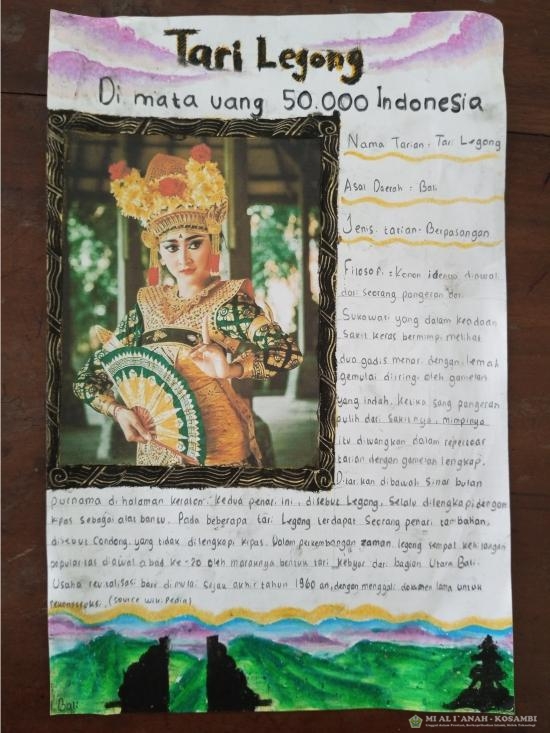 Tari Legong
Di mata uang 50.000 Indonesia
Nama Tarian : Tari Legong
Asal Daerah : Bali
Jenis tarian - Berpasangan
Filosofi : Konon idenya diawali
dari seorang pangeran dari
Sukawati yang dalam keadaan
sakit keras bermimpi melihat
dua gadis menari dengan lemah
gemulai diiringi oleh gamelan
yang indah. Ketika sang pangeran
pulih dari sakitnya, mimpinya
itu dituangkan dalam repertoar
tarian dengan gamelan lengkap.
Ditarikan dibawah sinar bulan
purnama di halaman keraton. Kedua penari ini, disebut Legong, Selalu dilengkapi dengan
kipas sebagai alat bantu. Pada beberapa tari Legong terdapat Seorang penari tambahan,
disebut Condong, yang tidak dilengkapi kipas. Dalam perkembangan zaman, legong sempat kehilangan
popularitas diawal abad ke-20 oleh maraknya bentuk tari kebyar dari bagian Utara Bali.
Usaha revitalisasi baru dimulai sejak akhir tahun 1960 an, dengan menggali dokumen lama untuk
rekonstruksi. (source wikipedia)
Bali
MI AL I'ANAH - KOSAMBI